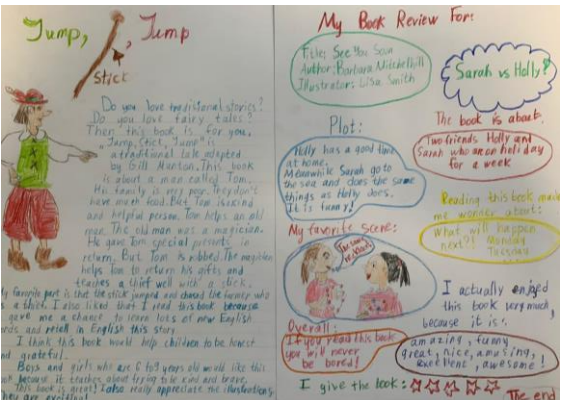 Jump, , Jump
Stick
Do you love traditional stories?
Do you love fairy tales?
Then this book is for you.
"Jump, Stick, Jump" is
a traditional tale adapted
by Gill Munton. This book
is about a man called Tom.
His family is very poor. They don't
have much food. But Tom is kind
and helpful person. Tom helps an old
man. The old man was a magician.
He gave Tom special presents in
return. But Tom is robbed. The magician
helps Tom to return his gifts and
teaches a thief well with a stick.
My favorite part is that the stick jumped and chased the farmer who
was a thief. I also liked that I read this book because
gave me a chance to learn lots of new English
words and retell in English this story.
I think this book would help children to be honest
and grateful.
Boys and girls who are 6 to 9 years old would like this
book because it teaches about trying to be kind and brave.
This book is great! I also really appreciate the illustrations,
they are exciting!
My Book Review For:
Title: See You Soon
Author: Barbara Mitchelhill
Illustrator: Lisa Smith
Sarah vs Holly?
The book is about:
Two friends Holly and
Sarah who are on holiday
for a week
Plot:
Holly has a good time
at home.
Meanwhile Sarah go to
the sea and does the same
things as Holly does.
It is funny!
Reading this book made
me wonder about:
What will happen
next?! Monday
Tuesday
My favorite scene:
The same
necklace!
I actually enjoyed
this book very much,
because it is:
amazing, funny
great, nice, amusing,
excellent, awesome!
Overall:
If you read this book
you will never
be bored!
I give the book:
The end